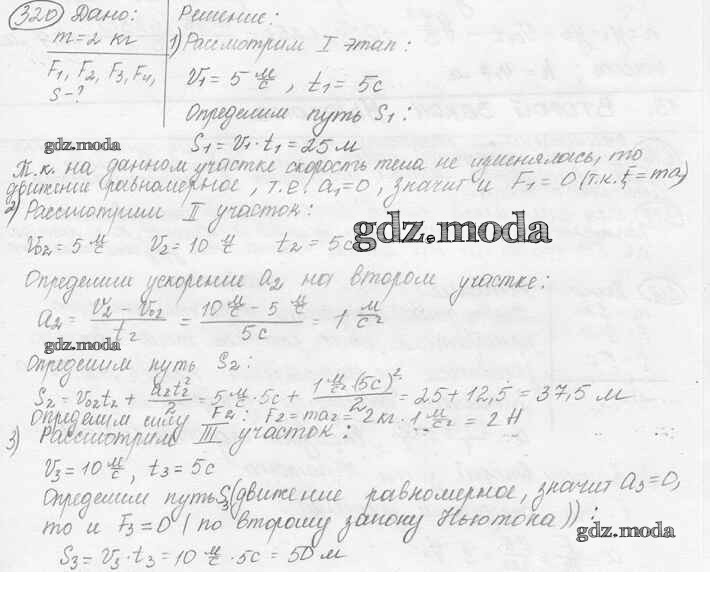 320 Дано: Решение:
m = 2 кг
F₁, F₂, F₃, F₄,
S - ?
1) Рассмотрим I этап:
V₁ = 5 м/с, t₁ = 5с
Определим путь S₁:
S₁ = V₁·t₁ = 25 м
gdz.moda
Т.к. на данном участке скорость тела не изменялась, то
движение равномерное, т.е. a₁=0, значит и F₁ = 0 (т.к. F = ma)
2) Рассмотрим II участок:
V₀₂ = 5 м/с V₂ = 10 м/с t₂ = 5с
gdz.moda
Определим ускорение a₂ на втором участке:
a₂ = (V₂ - V₀₂)/t₂ = (10 м/с - 5 м/с)/5с = 1 м/с²
gdz.moda
Определим путь S₂:
S₂ = V₀₂t₂ + a₂t₂²/2 = 5 м/с · 5с + 1 м/с² (5с)²/2 = 25 + 12,5 = 37,5 м
Определим силу F₂: F₂ = ma₂ = 2кг · 1 м/с² = 2Н
3) Рассмотрим III участок:
V₃ = 10 м/с, t₃ = 5с
Определим путь S₃ (движение равномерное, значит a₃=0,
то и F₃ = 0 (по второму закону Ньютона)):
gdz.moda
S₃ = V₃·t₃ = 10 м/с · 5с = 50 м